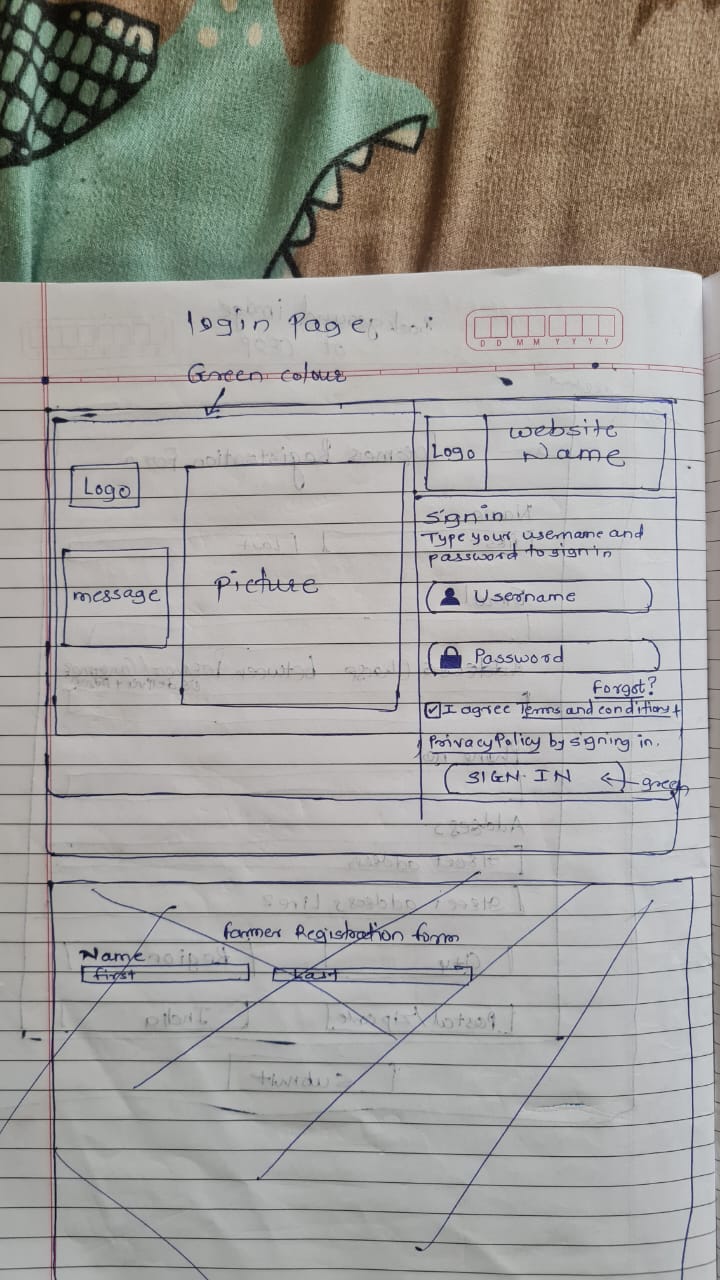 login Page;
D D M M Y Y Y Y
Green colour
Logo
message
picture
Logo
website
Name
Sign in
Type your username and
password to sign in
Username
Password
Forgot?
I agree Terms and conditions +
Privacy Policy by signing in.
SIGN IN ← green
Farmer Registration form
Name
first
Last